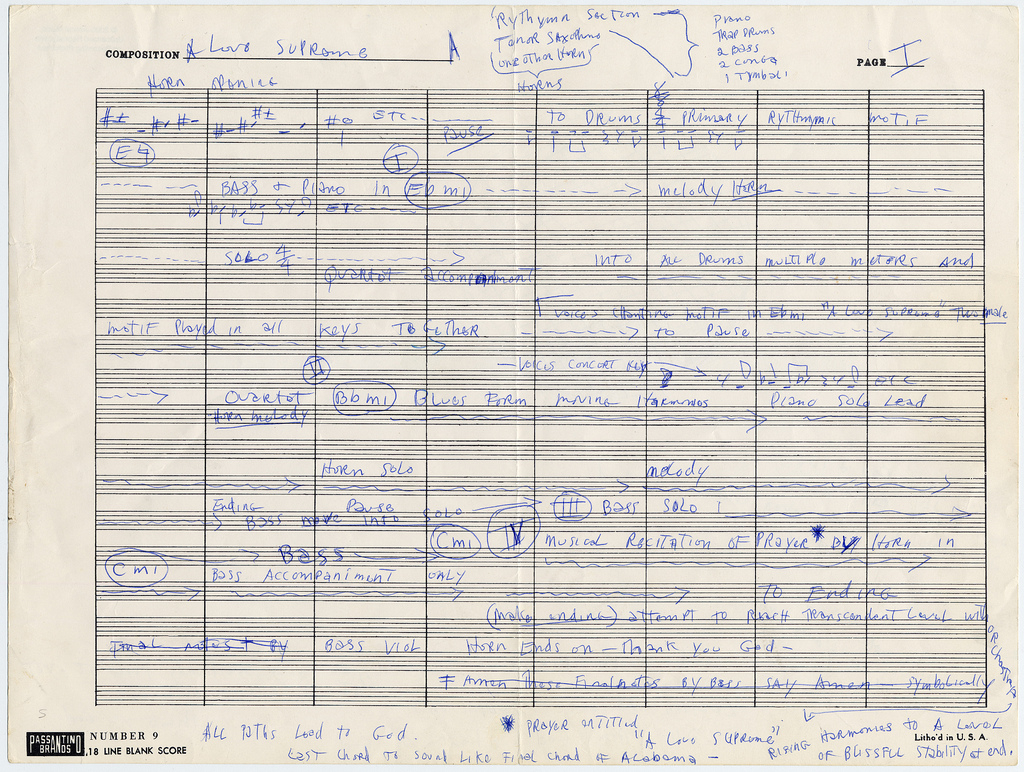 "Rythymn Section
Tenor Saxophone
(one other Horn)
Horns
Piano
Trap Drums
2 Bass
2 Conga
1 Tymbali
COMPOSITION A Love Supreme A
PAGE I
Horn opening
ETC
Pause
To Drums 4/4 Primary Rythmnic motif
E♮
I
Bass & Piano in Ebmi melody Horn
ETC
Solo 4/4 into all Drums multiple meters and
Quartet accompaniment
voices chanting motif in Ebmi "A Love Supreme" Two male
motif Played in all Keys Together to Pause
II
voices concert key
ETC
Quartet Bbmi Blues Form moving Harmonies Piano Solo Lead
Horn melody
Horn Solo melody
Ending Pause III Bass Solo 1
Bass move into Solo
Cmi IV Musical Recitation of Prayer * By Horn in
Bass
Cmi Bass Accompaniment only
To Ending
(make ending) attempt to Reach Transcendent Level with
orchestra
Final notes + By Bass Viol Horn Ends on — Thank you God —
Amen These Final notes By Bass Say Amen — Symbolically
Rising Harmonies to A Level
of Blissful Stability at end.
All Paths Lead to God.
* Prayer entitled
"A Love Supreme"
Last Chord to Sound Like Final Chord of Alabama —
5
PASSANTINO
BRANDS
NUMBER 9
18 LINE BLANK SCORE
Litho'd in U. S. A.